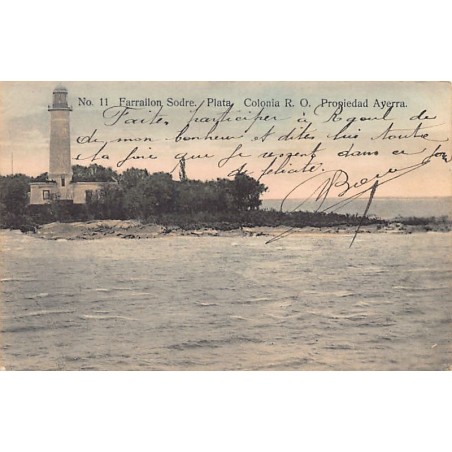 No. 11 Farrallon Sodre. Plata. Colonia R. O. Propiedad Ayerra.
Faites participer à Raoul de
de mon bonheur et dites lui toute
la joie que je ressent dans ce jour
de félicité.